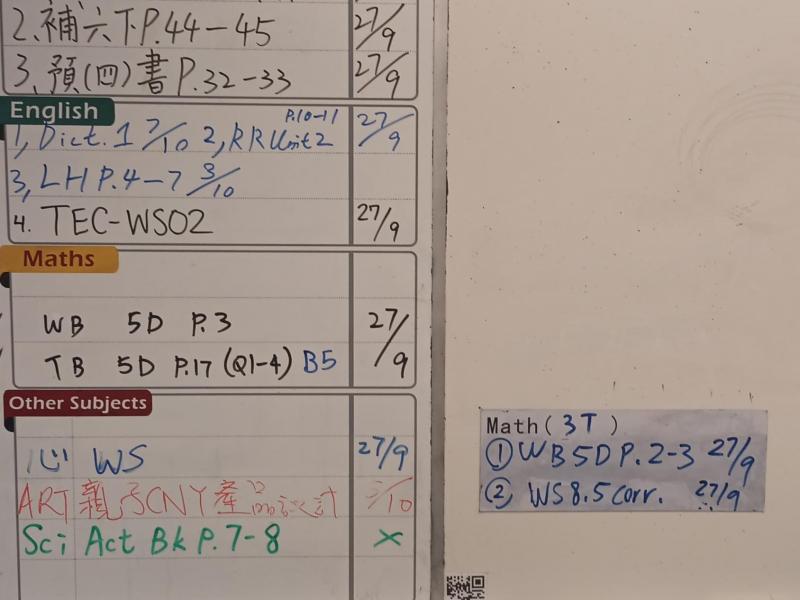 2. 補六下P.44-45 27/9
3. 預(四)書 P.32-33 27/9
English
P.10-11
1, Dict. 1 7/10 2, RR Unit 2 27/9
3, LH P.4-7 3/10
4. TEC-WS02 27/9
Maths
WB 5D P.3 27/9
TB 5D P.17 (Q1-4) B5
Other Subjects
心 WS 27/9
ART 親子CNY產品設計 /10
Sci Act Bk P.7-8 ×
Math( 3T )
① WB 5D P.2-3 27/9
② WS 8.5 corr. 27/9